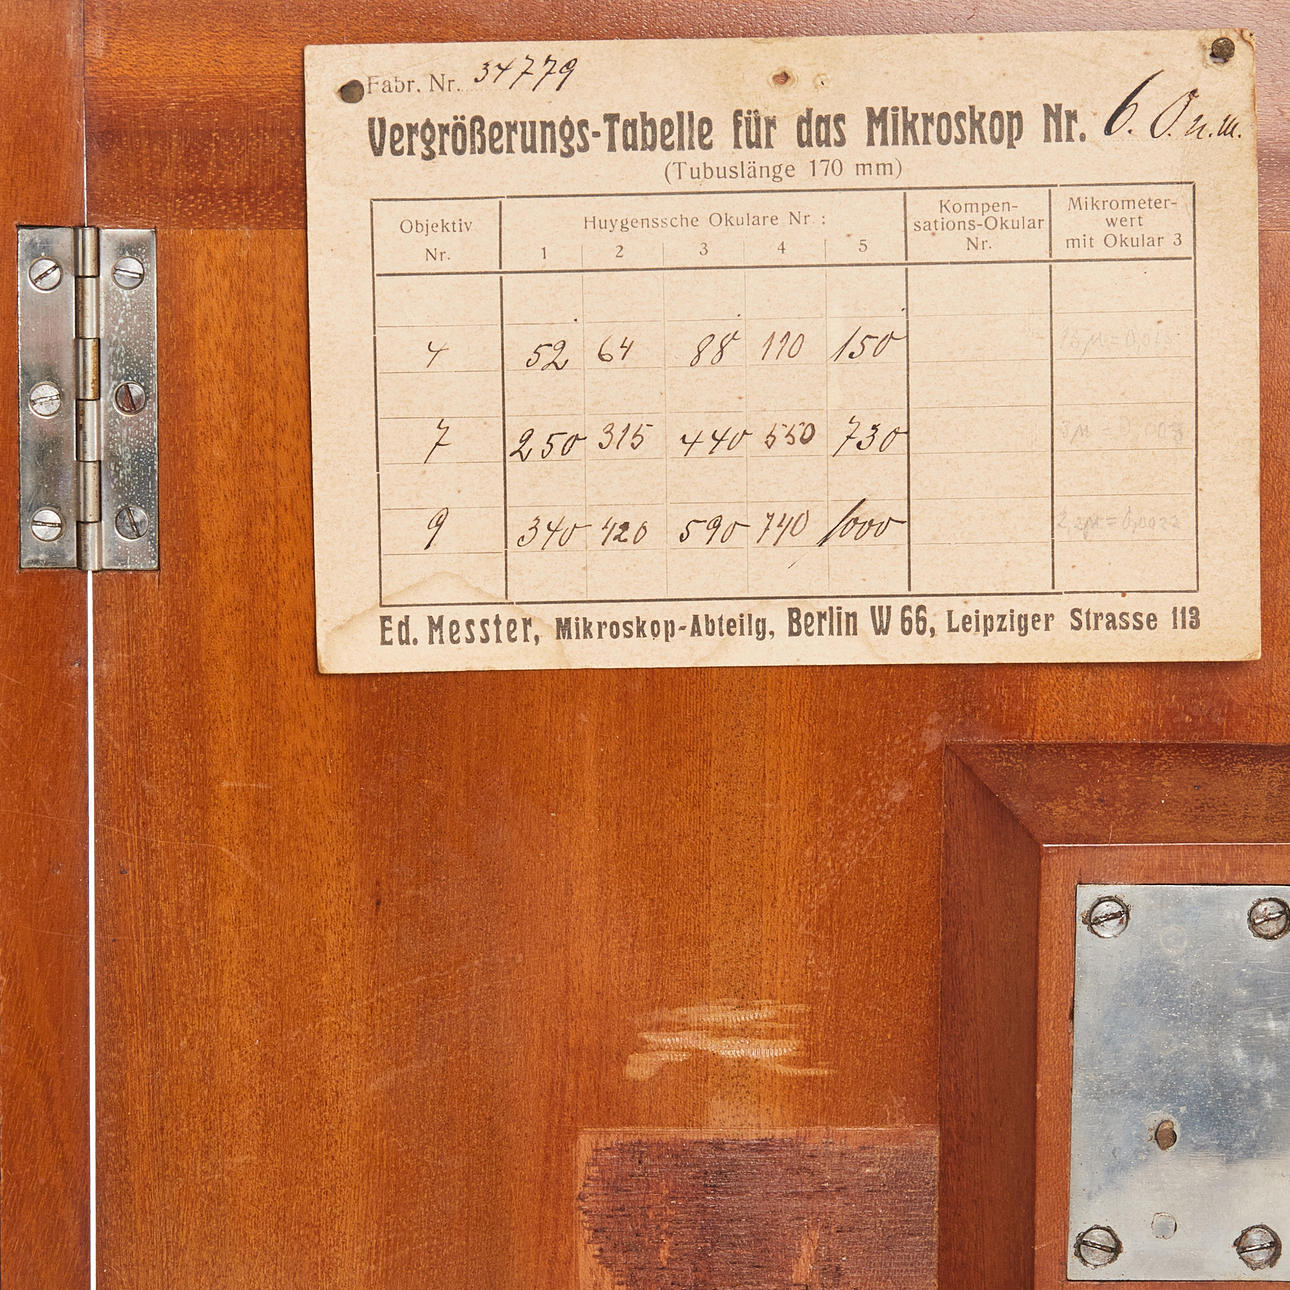 Fabr. Nr. 34779
Vergrößerungs-Tabelle für das Mikroskop Nr. 6.
(Tubuslänge 170 mm)
Objektiv Nr. Huygenssche Okulare Nr.: Kompen-sations-Okular Nr. Mikrometer-wert mit Okular 3
1 2 3 4 5
4 52 64 88 110 150
7 250 315 440 550 730
9 340 420 590 740 1000
Ed. Messter, Mikroskop-Abteilg, Berlin W 66, Leipziger Strasse 113